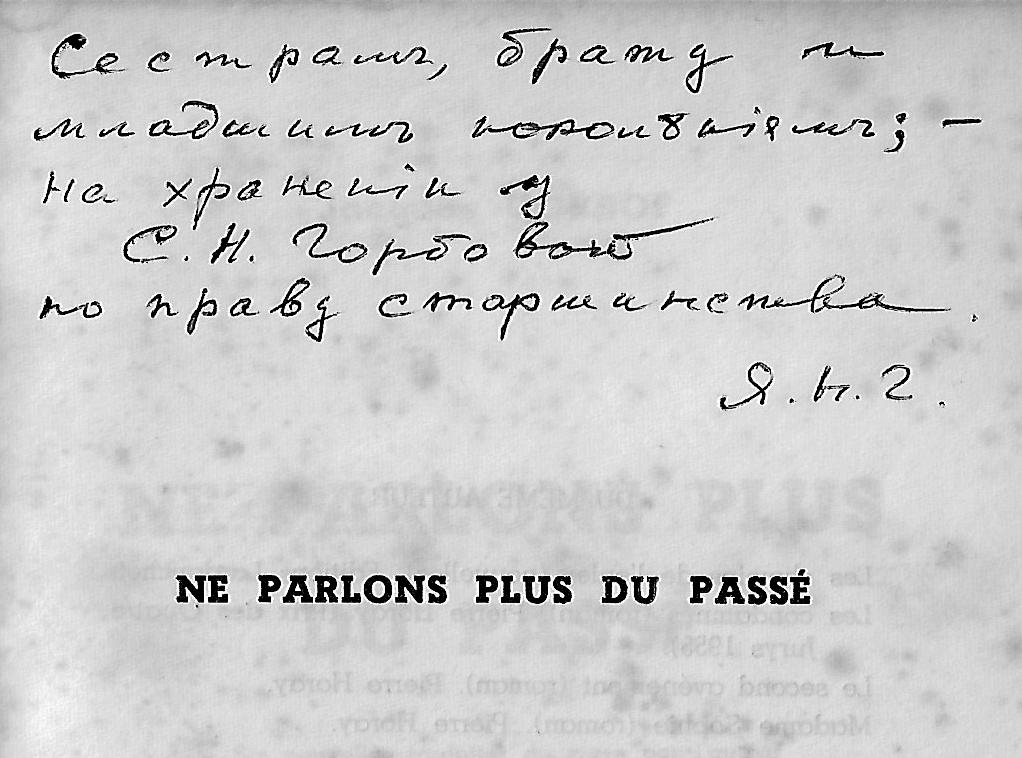 Сестрамъ, брату и
младшимъ поколѣніямъ; —
на храненіи у
С. Н. Горбовой
по праву старшинства.
Я. Н. Г.
NE PARLONS PLUS DU PASSÉ